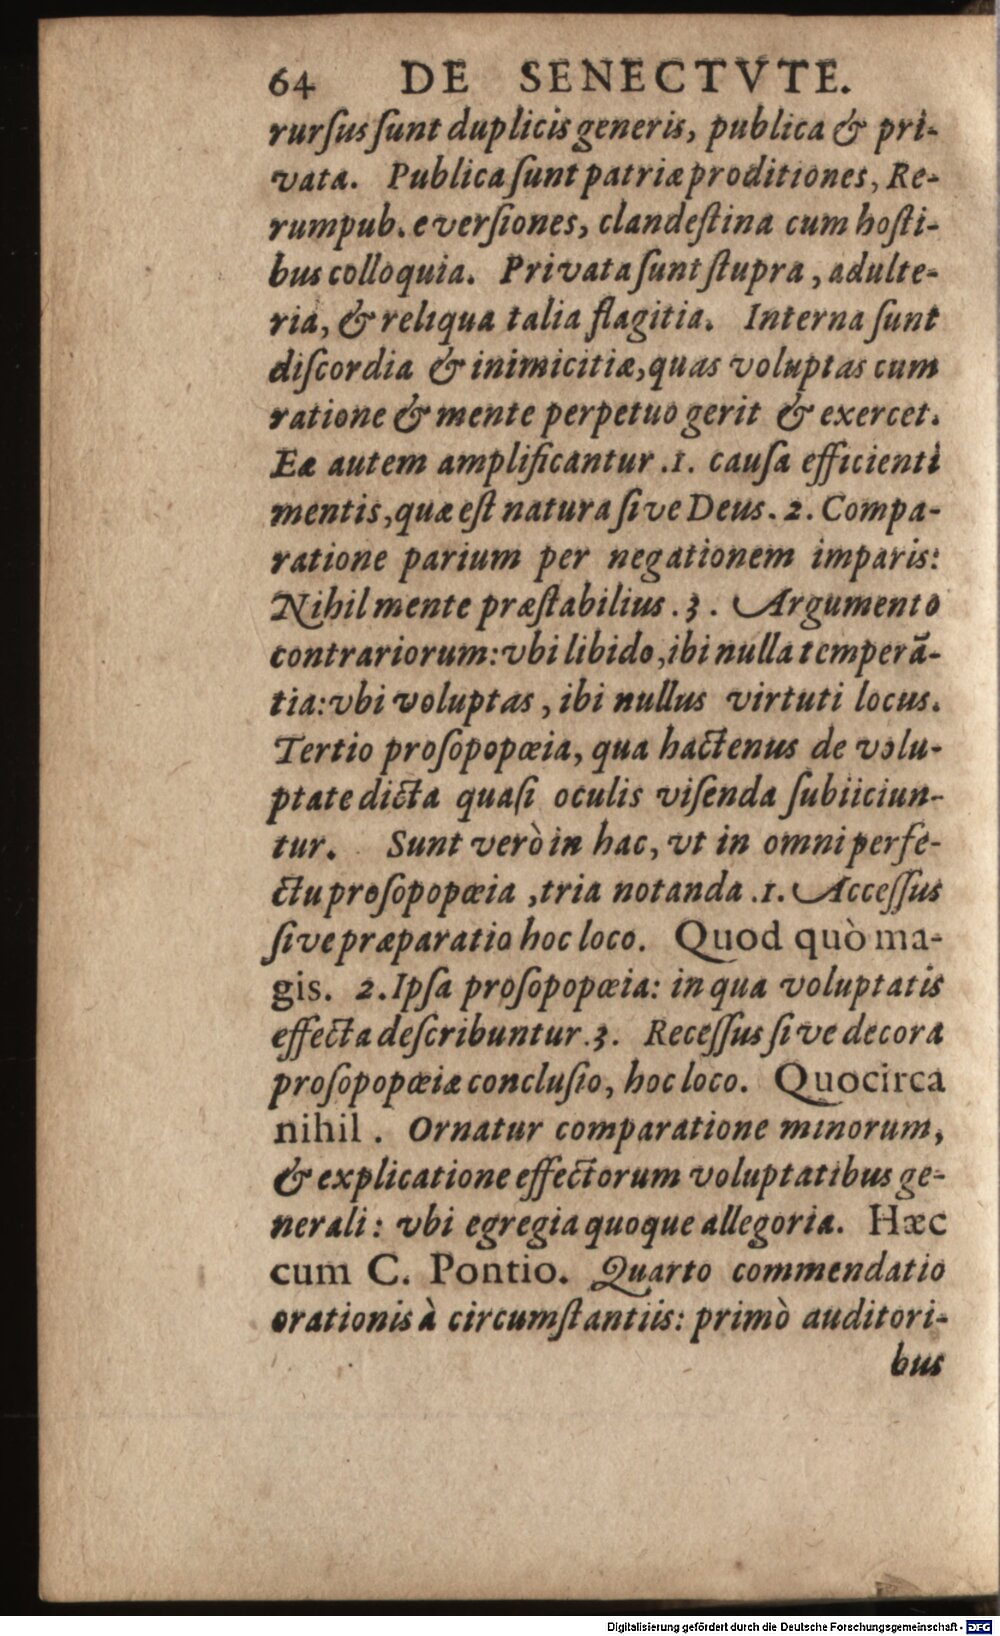 64 DE SENECTVTE.
rurſus ſunt duplicis generis, publica & pri-
vata. Publica ſunt patriæ proditiones, Re-
rumpub. everſiones, clandeſtina cum hoſti-
bus colloquia. Privata ſunt ſtupra, adulte-
ria, & reliqua talia flagitia. Interna ſunt
diſcordia & inimicitiæ, quas voluptas cum
ratione & mente perpetuo gerit & exercet.
Eæ autem amplificantur .1. cauſa efficienti
mentis, quæ eſt natura ſive Deus. 2. Compa-
ratione parium per negationem imparis:
Nihil mente præſtabilius .3. Argumento
contrariorum: vbi libido, ibi nulla temperã-
tia: vbi voluptas, ibi nullus virtuti locus.
Tertio proſopopœia, qua hactenus de volu-
ptate dicta quaſi oculis viſenda ſubiiciun-
tur. Sunt verò in hac, vt in omni perfe-
ctu proſopopœia, tria notanda .1. Acceſſus
ſive præparatio hoc loco. Quod quò ma-
gis. 2. Ipſa proſopopœia: in qua voluptatis
effecta deſcribuntur .3. Receſſus ſive decora
proſopopœiæ concluſio, hoc loco. Quocirca
nihil. Ornatur comparatione minorum,
& explicatione effectorum voluptatibus ge-
nerali: vbi egregia quoque allegoria. Hæc
cum C. Pontio. Quarto commendatio
orationis à circumſtantiis: primò auditori-
bus
Digitalisierung gefördert durch die Deutsche Forschungsgemeinschaft - DFG